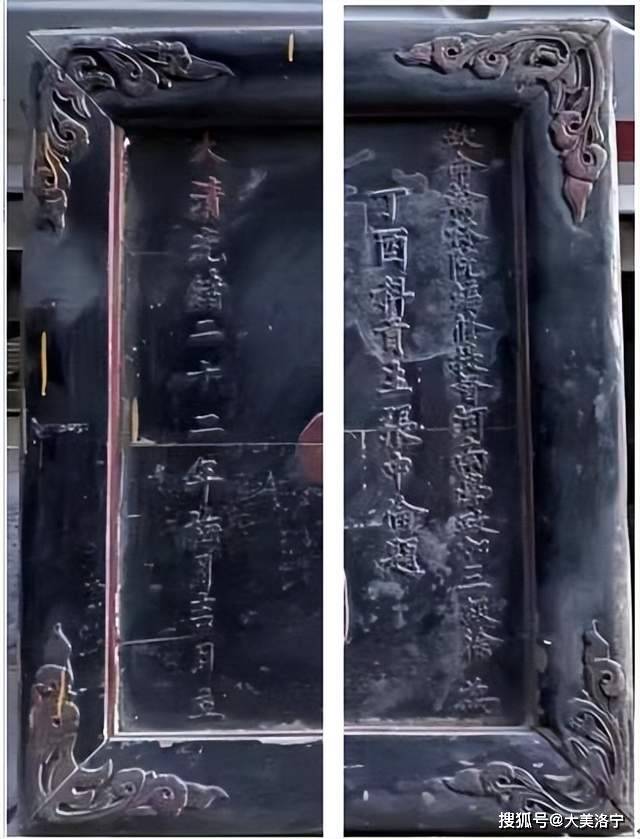 欽命翰林院編修提督河南學政加三級徐 為
丁酉科貢生張中倫題
大清光緒二十二年月吉日立
搜狐号@大美洛宁